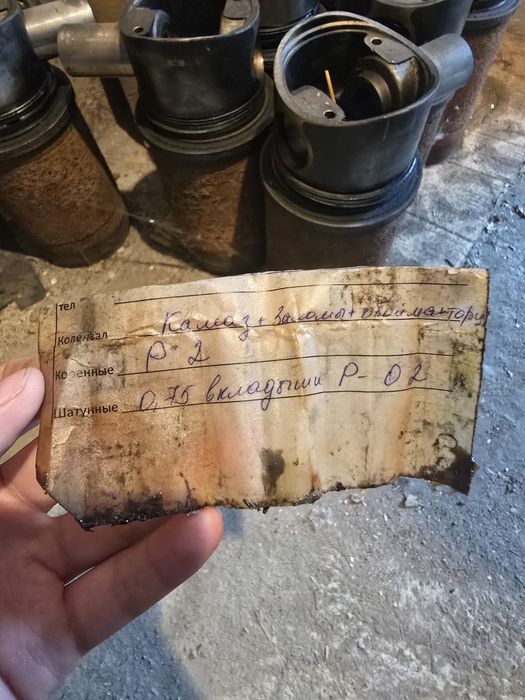 тел
Коленвал Камаз + Заломы +
Коренные Р 2
Шатунные 0,75 вкладыши Р- 02